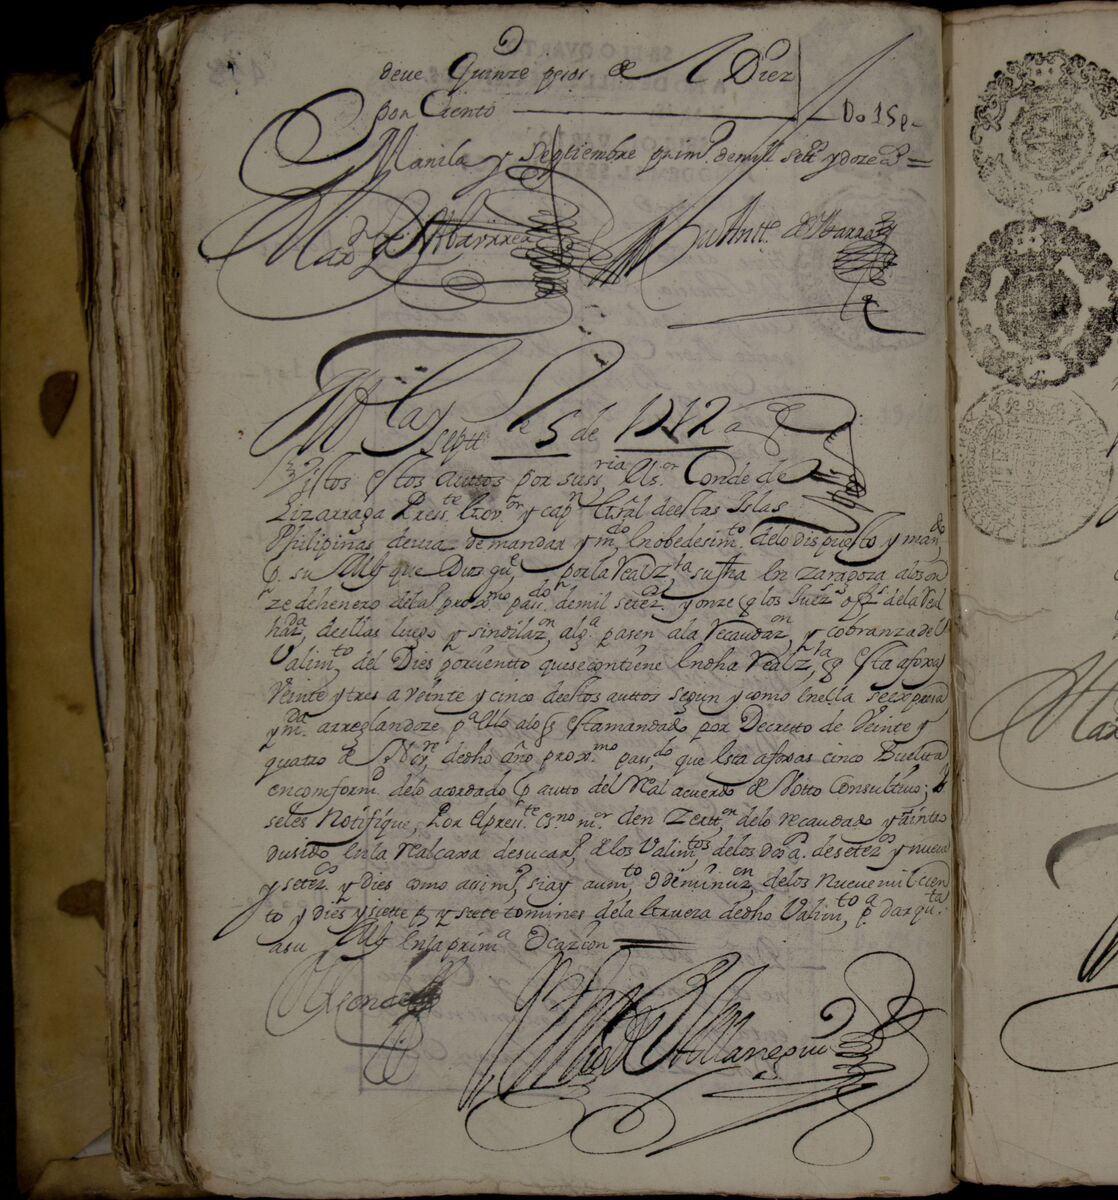 deue Quinze pesos de A Diez
por Ciento — Do 15p-
Manila y Septiembre prim.º de mill setº y doze aº =
de Ybarra de Ybarra
Mla y septt.e 5 de 1712 aº
Vistos estos auttos por suss.ria Us.or Conde de
Lizarraga Press.te Gov.or y cap.n Gral de estas Islas
Philipinas deuia de mandar y m.do en obedesim.to delo dispuesto y man.do
p. su Mg que Dios gu.e por la real z.la su fha en zaragoza alos on
ze de henero del aº prox.mo pas.do de mil setez.s y onze q los Juez.s ofiz.s de la real
haz.da de ellas luego y sin dilaz.on alg.a pasen ala recaudaz.on y cobranza del
Valim.to del Dies por cientto que se contiene en dha real z.la q esta afoxas
Veinte y tres a veinte y cinco de estos auttos segun y como en ella se expresa
y m.da arreglandoze p.a ello alo q esta mandado por Decretto de Veinte y
quatro de Nov.re de dho año prox.mo pas.do que esta afoxas cinco Buelta
en comform.d delo acordado p auto del real acuerdo de Votto Consultiuo;
seles Notifique, Por el pres.te es.no m.or den Zertt.on delo recaudado y aintro
dusido en la real caxa de su car.º de los Valim.tos delos dos a.s de setez.s y nueue
y setez.s y dies como assim.º si ay aum.to o diminuz.on delos nueue mil cien
to y dies y siette p.s y siete tomines dela gruesa de dho Valim.to p.a dar qu.ta
asu Mg en la prim.a ocazion
El Conde